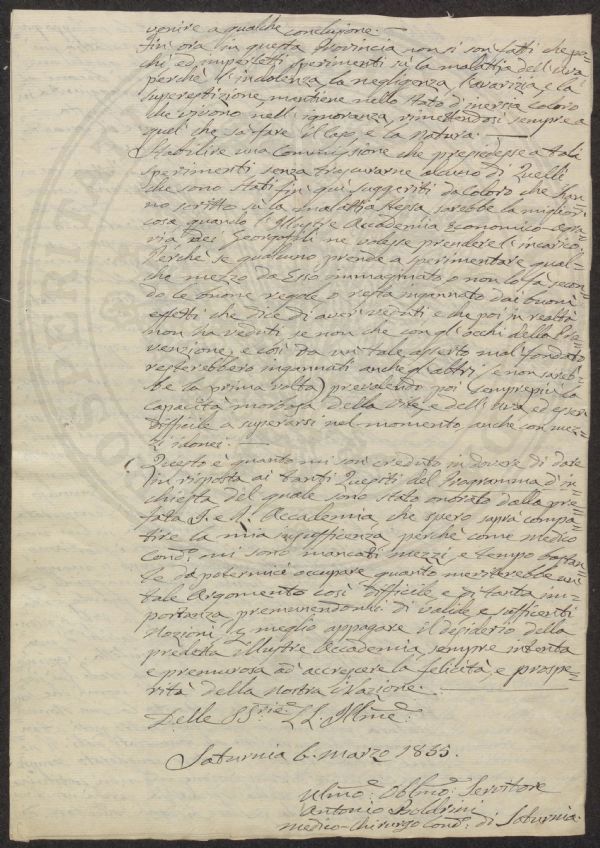 venire a qualche conclusione. —
Fin' ora in questa Provincia non si son fatti che po=
chi ed imperfetti sperimenti sù la malattia dell'uva
perchè l'indolenza, la negligenza, l'avarizia, e la
superstizione, mantiene nello stato d'inerzia coloro
che vivono nell'ignoranza, rimettendosi sempre a
quel che sà fare il Capo, e la Natura. —
Stabilire una Commissione che presiedesse a tali
sperimenti senza trascurarne alcuno di quelli
che sono stati fin quì suggeriti da coloro che han=
no scritto sù la malattia stessa sarebbe la miglior
cosa quando l'Illustre Accademia Economico-Agra=
ria dei Georgofili ne volesse prendere l'incarico.
Perchè se qualcuno prende a sperimentare qual=
che mezzo da Esso immaginato, o non lo fà secon=
do le buone regole, o resta ingannato dai buoni
effetti che dice di aver veduti e che poi in realtà
non ha veduti se non che con gl'occhi della Pre=
venzione, e così da un tale asserto mal fondato
resterebbero ingannati anche gl'altri (e non sareb=
be la prima volta) prevalendo poi semprepiù la
capacità morbosa della Vite, e dell'uva ed esser
difficile a superarsi nel momento anche con mez=
zi idonei. —
Questo è quanto mi son creduto in dovere di dare
in risposta ai tanti Quesiti del Programma d'in=
chiesta del quale sono stato onorato dalla pre=
fata I. e R. Accademia, che spero saprà compa=
tire la mia insufficenza, perchè come medico
Cond.º mi sono mancati mezzi e tempo bastan=
te da potermici occupare quanto meriterebbe un
tale Argomento così difficile e di tanta im=
portanza premunendomi di valide e sufficenti
Nozioni, meglio appagare il desiderio della
predetta illustre Accademia sempre intenta
e premurosa ad accrescere la felicità, e prospe=
rità della nostra Nazione. —
Delle SS.rie LL. Illme.
Saturnia 6. Marzo 1855.
Umo. Obblmo. Servitore
Antonio Boldrini
Medico-Chirurgo Cond.º di Saturnia.